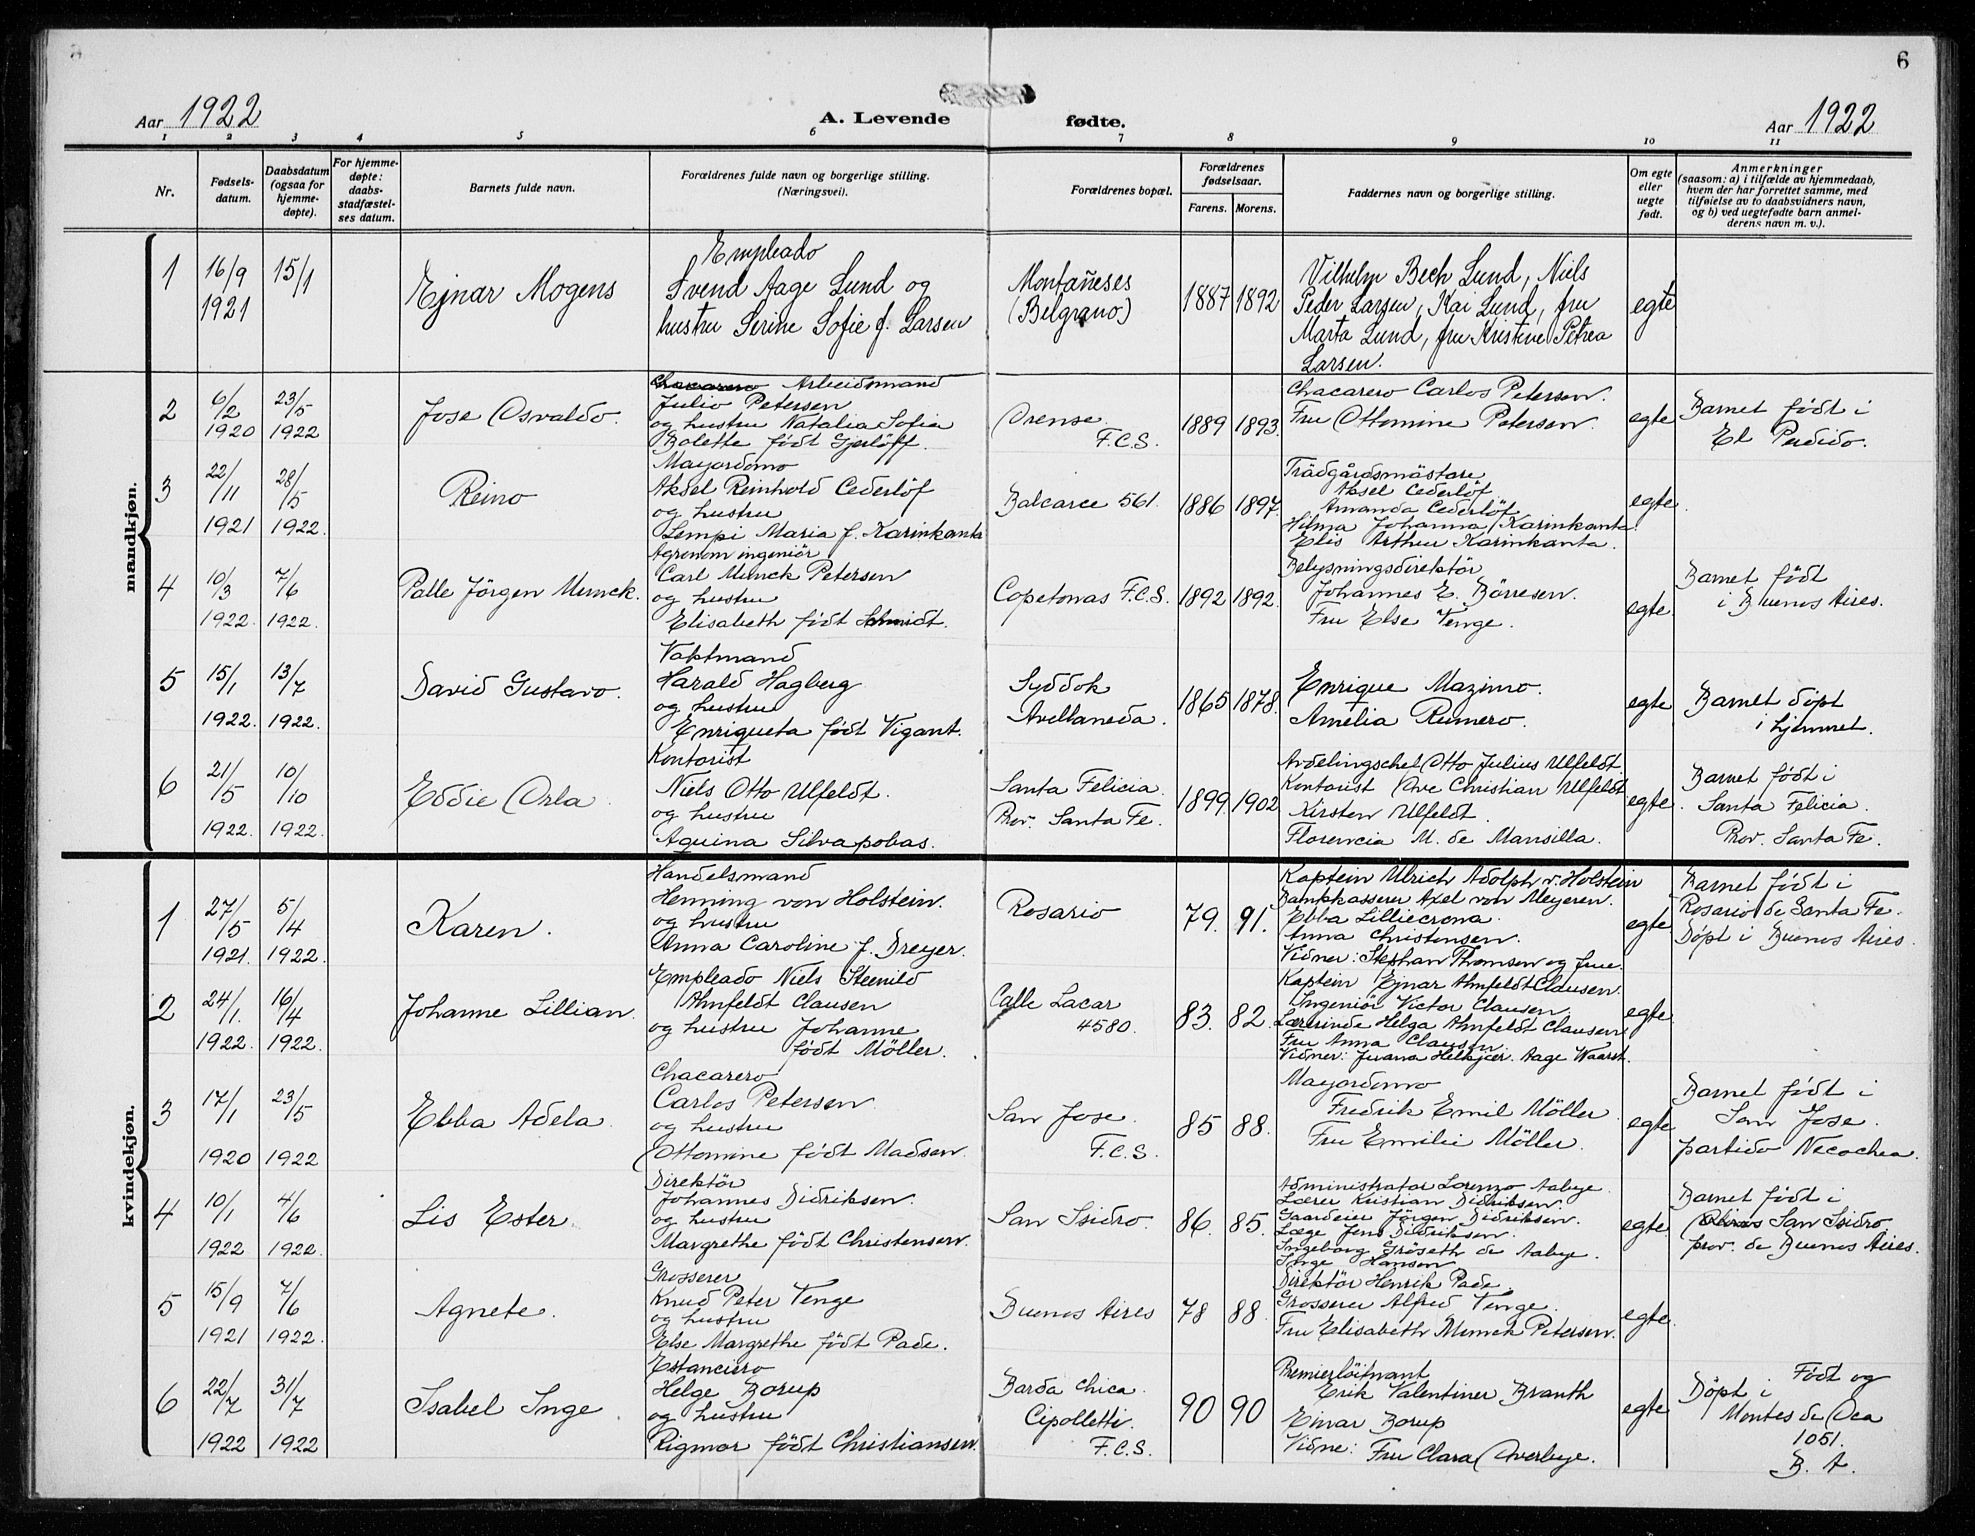 6
Aar 1922
A. Levende fødte.
Aar 1922
1 2 3 4 5 6 7 8 9 10 11
Nr.
Fødsels-
datum.
Daabsdatum
(ogsaa for
hjemme-
døpte).
For hjemme-
døpte:
daabs-
stadfæstel-
ses datum.
Barnets fulde navn.
Forældrenes fulde navn og borgerlige stilling.
(Næringsvei).
Forældrenes bopæl.
Forældrenes
fødselsaar.
Farens. Morens.
Faddernes navn og borgerlige stilling.
Om egte
eller
uegte
født.
Anmerkninger
(saasom: a) i tilfælde av hjemmedaab,
hvem der har forrettet samme, med
tilføielse av to daabsvidners navn,
og b) ved uegtefødte barn anmel-
derens navn m. v.).
mandkjøn.
1
16/9
1921
15/1
Ejnar Mogens
Empleado
Svend Aage Lund og
hustru Serine Sofie f. Larsen
Montañeses
(Belgrano)
1887 1892
Vilhelm Bech Lund, Niels
Peder Larsen, Kai Lund, fru
Marta Lund, fru Kristine Petrea
Larsen.
egte
2
6/2
1920
23/5
1922
Jose Osvaldo.
Chacarero Arbeidsmand
Julio Petersen
og hustru Natalia Sofia
Bolette født Gjerløff.
Orense.
F.C.S.
1889 1893.
Chacarero Carlos Petersen.
Fru Ottomine Petersen.
egte
Barnet født i
El Perdido.
3
22/11
1921
28/5
1922.
Reino
Mayordomo
Aksel Reinhold Cederlöf
og hustru
Lempi Maria f. Karinkanta
Balcarce 561.
1886 1897.
Trädgårdsmästare
Aksel Cederlöf
Amanda Cederlöf
Hilma Johanna Karinkanta.
Elis Arthur Karinkanta.
egte.
4
10/3
1922.
7/6
1922.
Palle Jörgen Munck.
Agronom ingeniör
Carl Munck Petersen
og hustru
Elisabeth født Schmidt.
Copetonas F.C.S.
1892 1892.
Belysningsdirektör
Johannes E. Börresen.
Fru Else Venge.
egte
Barnet født
i Buenos Aires.
5
15/1
1922.
13/7
1922.
David Gustavo.
Vaktmand
Harald Hagberg
og hustru
Enriqueta født Vigant.
Syddok
Avellaneda.
1865 1878.
Enrique Mazimo.
Amelia Rumero.
egte
Barnet döpt
i hjemmet.
6
21/5
1922.
10/10
1922.
Eddie Orla
Kontorist
Niels Otto Ulfeldt.
og hustru
Aquina Silvapobas.
Santa Felicia.
Prov. Santa Fe.
1899. 1902
Avdelingschef Otto Julius Ulfeldt
Kontorist Ove Christian Ulfeldt
Kirsten Ulfeldt.
Florencia M. de Mansilla.
egte.
Barnet født i
Santa Felicia.
Prov. Santa Fe.
kvindekjøn.
1
27/5
1921.
5/4
1922.
Karen.
Handelsmand
Henning von Holstein.
og hustru
Anna Caroline f. Dreyer.
Rosario
79. 91.
Kaptein Ulrich Adolph v. Holstein
Bankkasserer Axel von Meyeren.
Ebba Lilliecrona.
Anna Christensen.
Vidner: Stephan Thomsen og frue.
egte
Barnet født i
Rosario de Santa Fe.
Döpt i Buenos Aires.
2
24/1.
1922.
16/4
1922.
Johanne Lillian.
Empleado Niels Steenild
Ahnfeldt Clausen
og hustru Johanne
født Möller.
Calle Lacar
4580.
83. 82.
Kaptein Ejnar Ahnfeldt Clausen.
Ingeniör Victor Clausen
Lærerinde Helga Ahnfeldt Clausen
Fru Anna Clausen.
Vidner: Juana Helkjær. Aage Waarst.
egte
3
17/1
1920
23/5
1922
Ebba Adela.
Chacarero
Carlos Petersen
og hustru
Ottomine født Madsen.
San Jose.
F.C.S.
85 88.
Mayordomo
Fredrik Emil Möller.
Fru Emilie Möller.
egte
Barnet født i
San Jose.
partido Necochea.
4
10/1
1922
4/6
1922.
Lis Ester.
Direktör
Johannes Didriksen.
og hustru
Margrethe født Christensen.
San Isidro.
86. 85.
Administrator Lorenzo Aabye.
Lærer Kristian Didriksen.
Gaardeier Jörgen Didriksen.
Læge Jens Didriksen.
Ingeborg Gröseth de Aabye.
Inge Hansen
egte
Barnet født i
San Isidro
prov. de Buenos Aires.
5
15/9
1921
7/6
1922.
Agnete.
Grosserer
Knud Peter Venge
og hustru
Else Margrethe født Pade.
Buenos Aires
78 88.
Direktör Henrik Pade.
Grosserer Alfred Venge.
Fru Elisabeth Munck Petersen.
egte.
6
22/7
1922
31/7
1922
Isabel Inge
Estanciero
Helge Borup
og hustru
Rigmor født Christiansen.
Barda Chica.
Cipolletti.
F.C.S.
90 90
Premierlöitnant
Erik Valentiner Branth
Einar Borup
Vidne: Fru Clara Overbye.
egte
Født og
Döpt i
Montes de Oca
1051.
B. A.